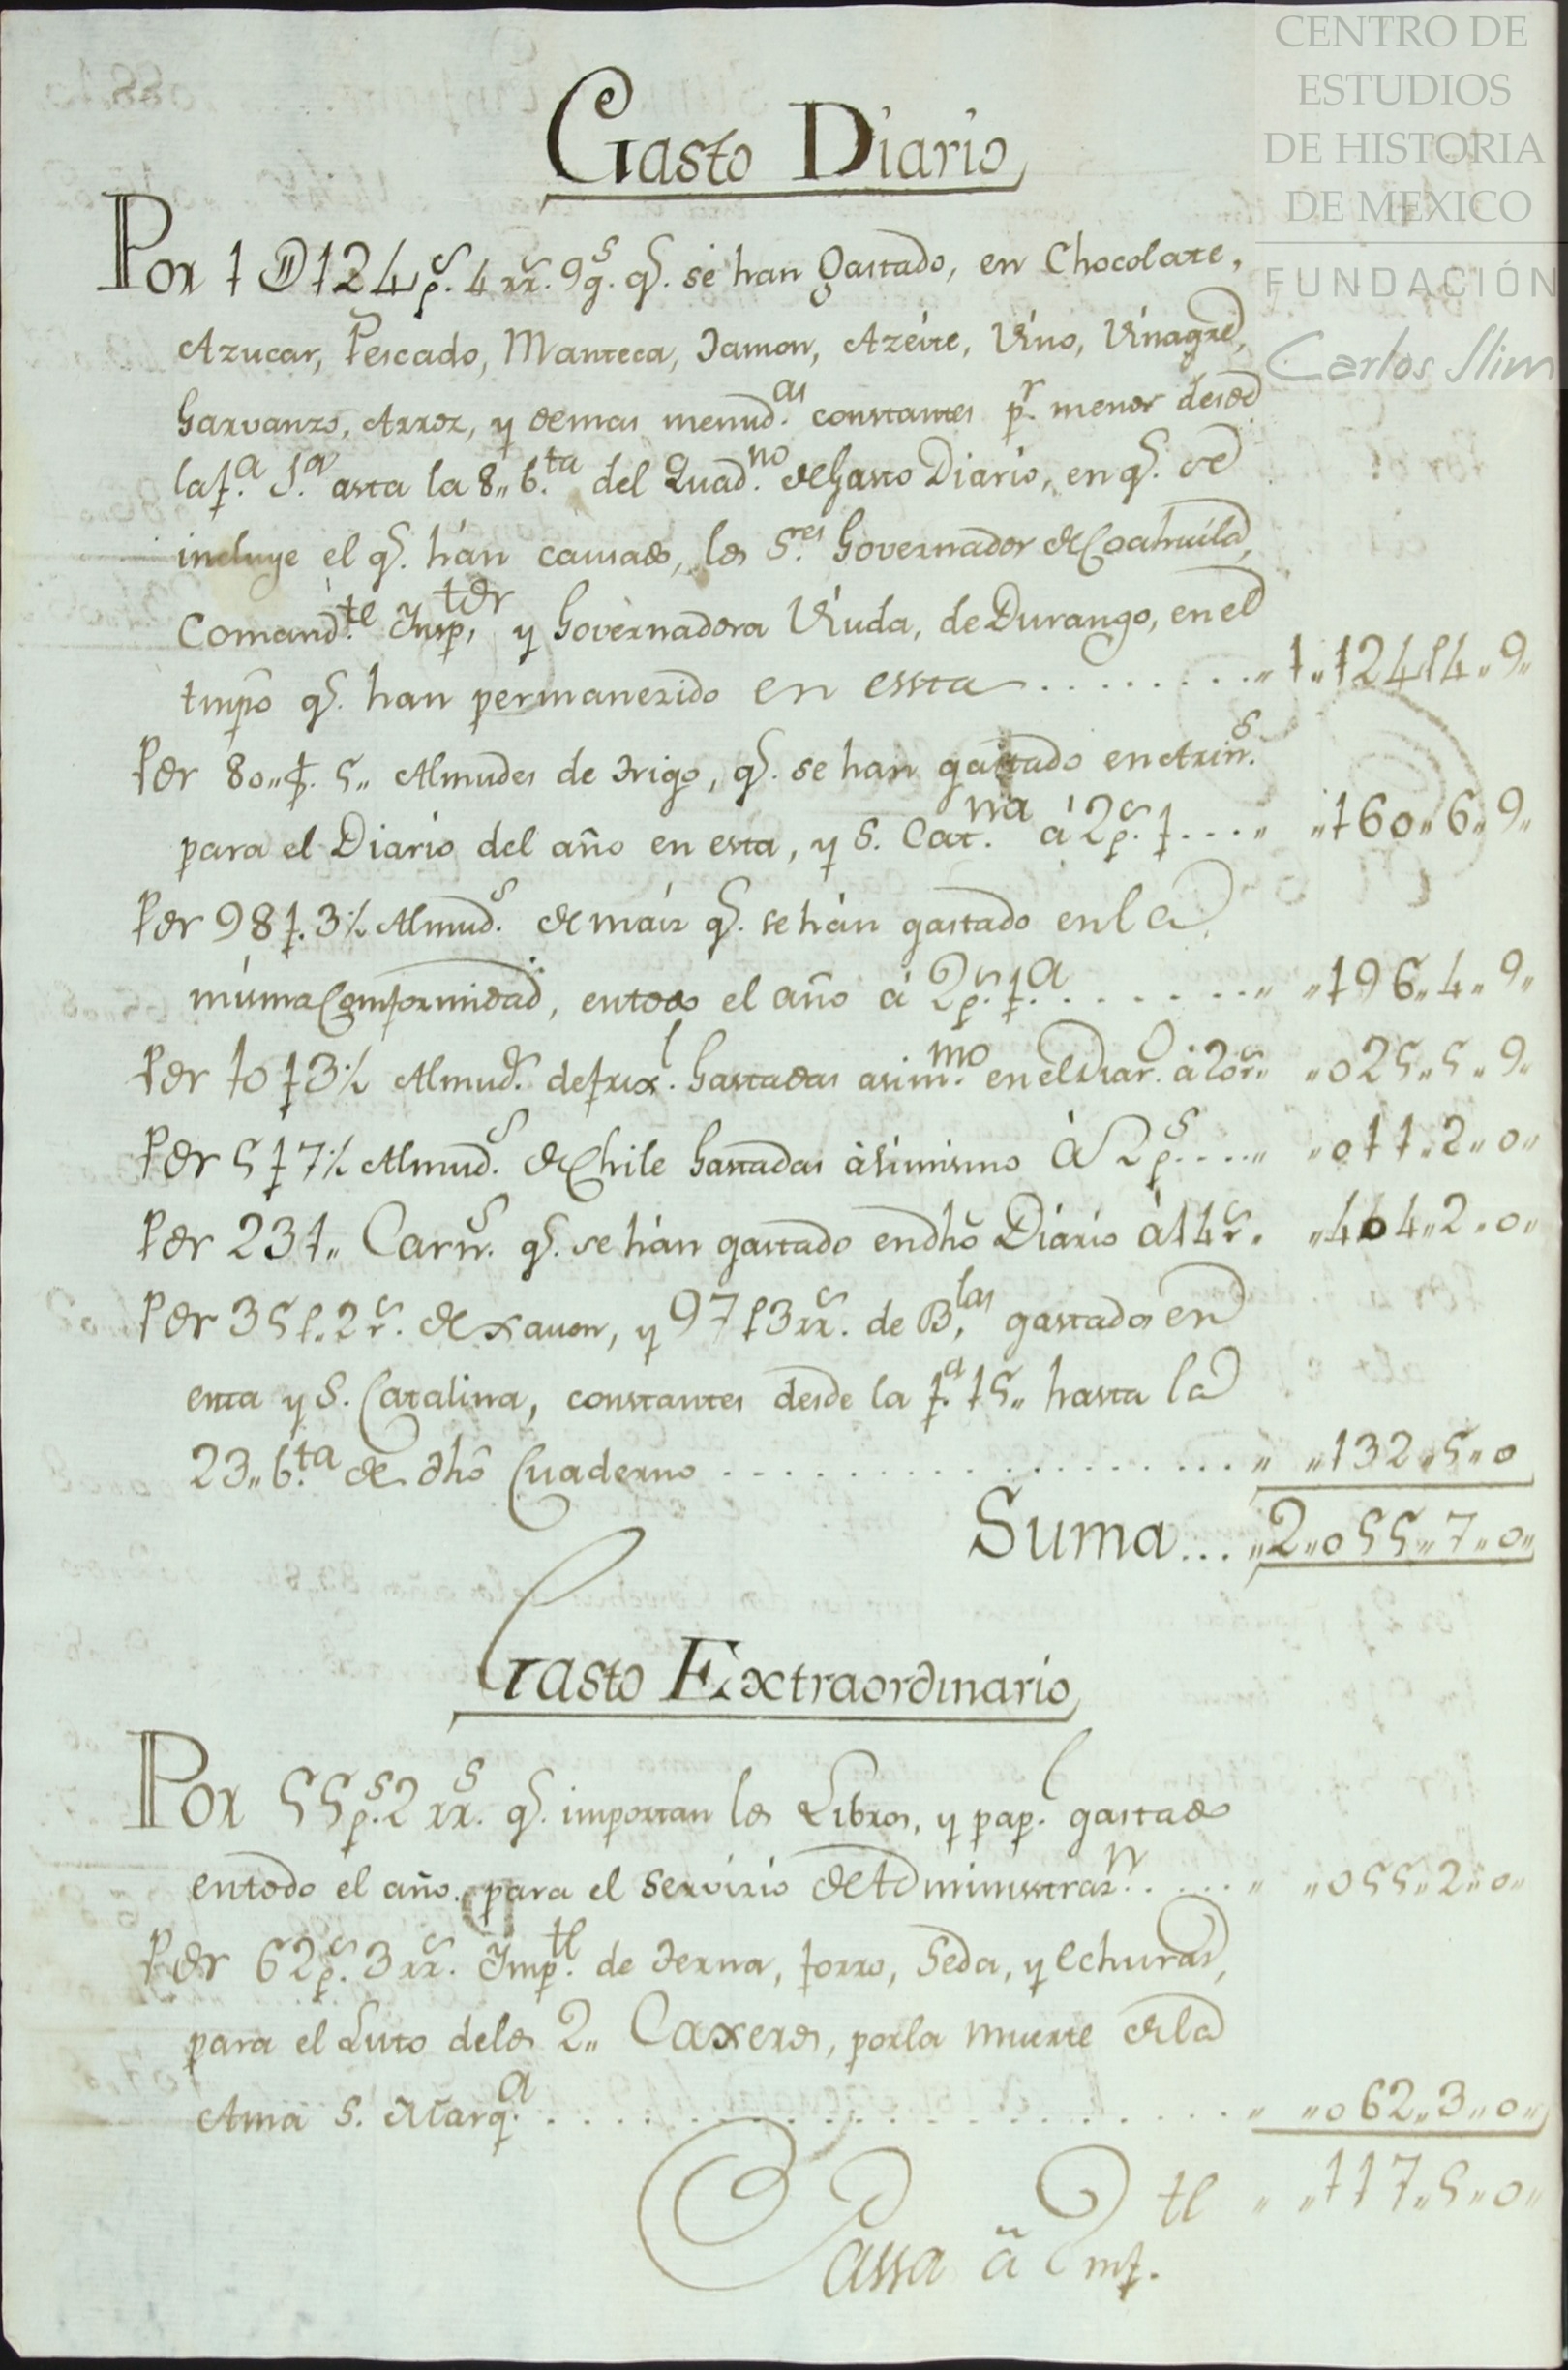 CENTRO DE
ESTUDIOS
DE HISTORIA
DE MEXICO
FUNDACIÓN
Carlos Slim
Gasto Diario
Por 1 D 124 p.s 4 rr.s 9 g.s q.e se han Gastado, en Chocolate,
Azucar, Pescado, Manteca, Jamon, Azeite, Vino, Vinagre,
Garvanzo, Arroz, y demas menud.as constantes p.r menor desde
la f.a 1.a asta la 8,, b.ta del Quad.no de Gasto Diario, en q.e se
incluye el q.e hán causado, los S.res Governador de Coahuila,
Comand.te Insp.tor y Governadora Viuda, de Durango, en el
tmpo q.e han permanezido en essta ......... ,,1,,124,,4,,9,,
Por 80,, f. 5,, Almudes de trigo, q.e se han gastado en Arin.s
para el Diario del año en esta, y S. Cat.na á 2 p.s f.... ,, ,,160,,6,,9,,
Por 98 f. 3½ Almud.s de maiz q.e se hán gastado en la
misma Comformidad, en todo el año á 2 p.s f.a ........ ,, ,,196,,4,,9,,
Por 10 f 3½ Almud.s de frix.l Gastadas asim.mo en el Diar.o á 20 r.s ,, ,,025,,5,,9,,
Por 5 f 7½ Almud.s de Chile Gastadas ásimismo á 2 p.s .... ,, ,,011,,2,,0,,
Por 231,, Carn.s q.e se hán gastado en dho Diário á 14 r.s ,, ,,404,,2,,0,,
Por 35 p. 2 r.s de xavon, y 97 p 3 rr.s de B.las gastados en
esta y S. Catalina, constantes desde la f.a 15,, hasta la
23,, b.ta de dho Cuaderno .................... ,, ,,132,,5,,0
Suma... ,,2,,055,,7,,0,,
Gasto Extraordinario
Por 55 p.s 2 rr.s q.e importan los Libros, y pap.l gastado
en todo el año para el servizio de Administraz.n ..... ,, ,,055,,2,,0,,
Por 62 p.s 3 rr.s Imp.te de terna, forro, Seda, y Echuras,
para el Luto de los 2,, Caxeros, por la muerte de la
Ama S. Marq.a .................... ,, ,,062,,3,,0,,
Passa á la f.te ,, ,,117,,5,,0,,